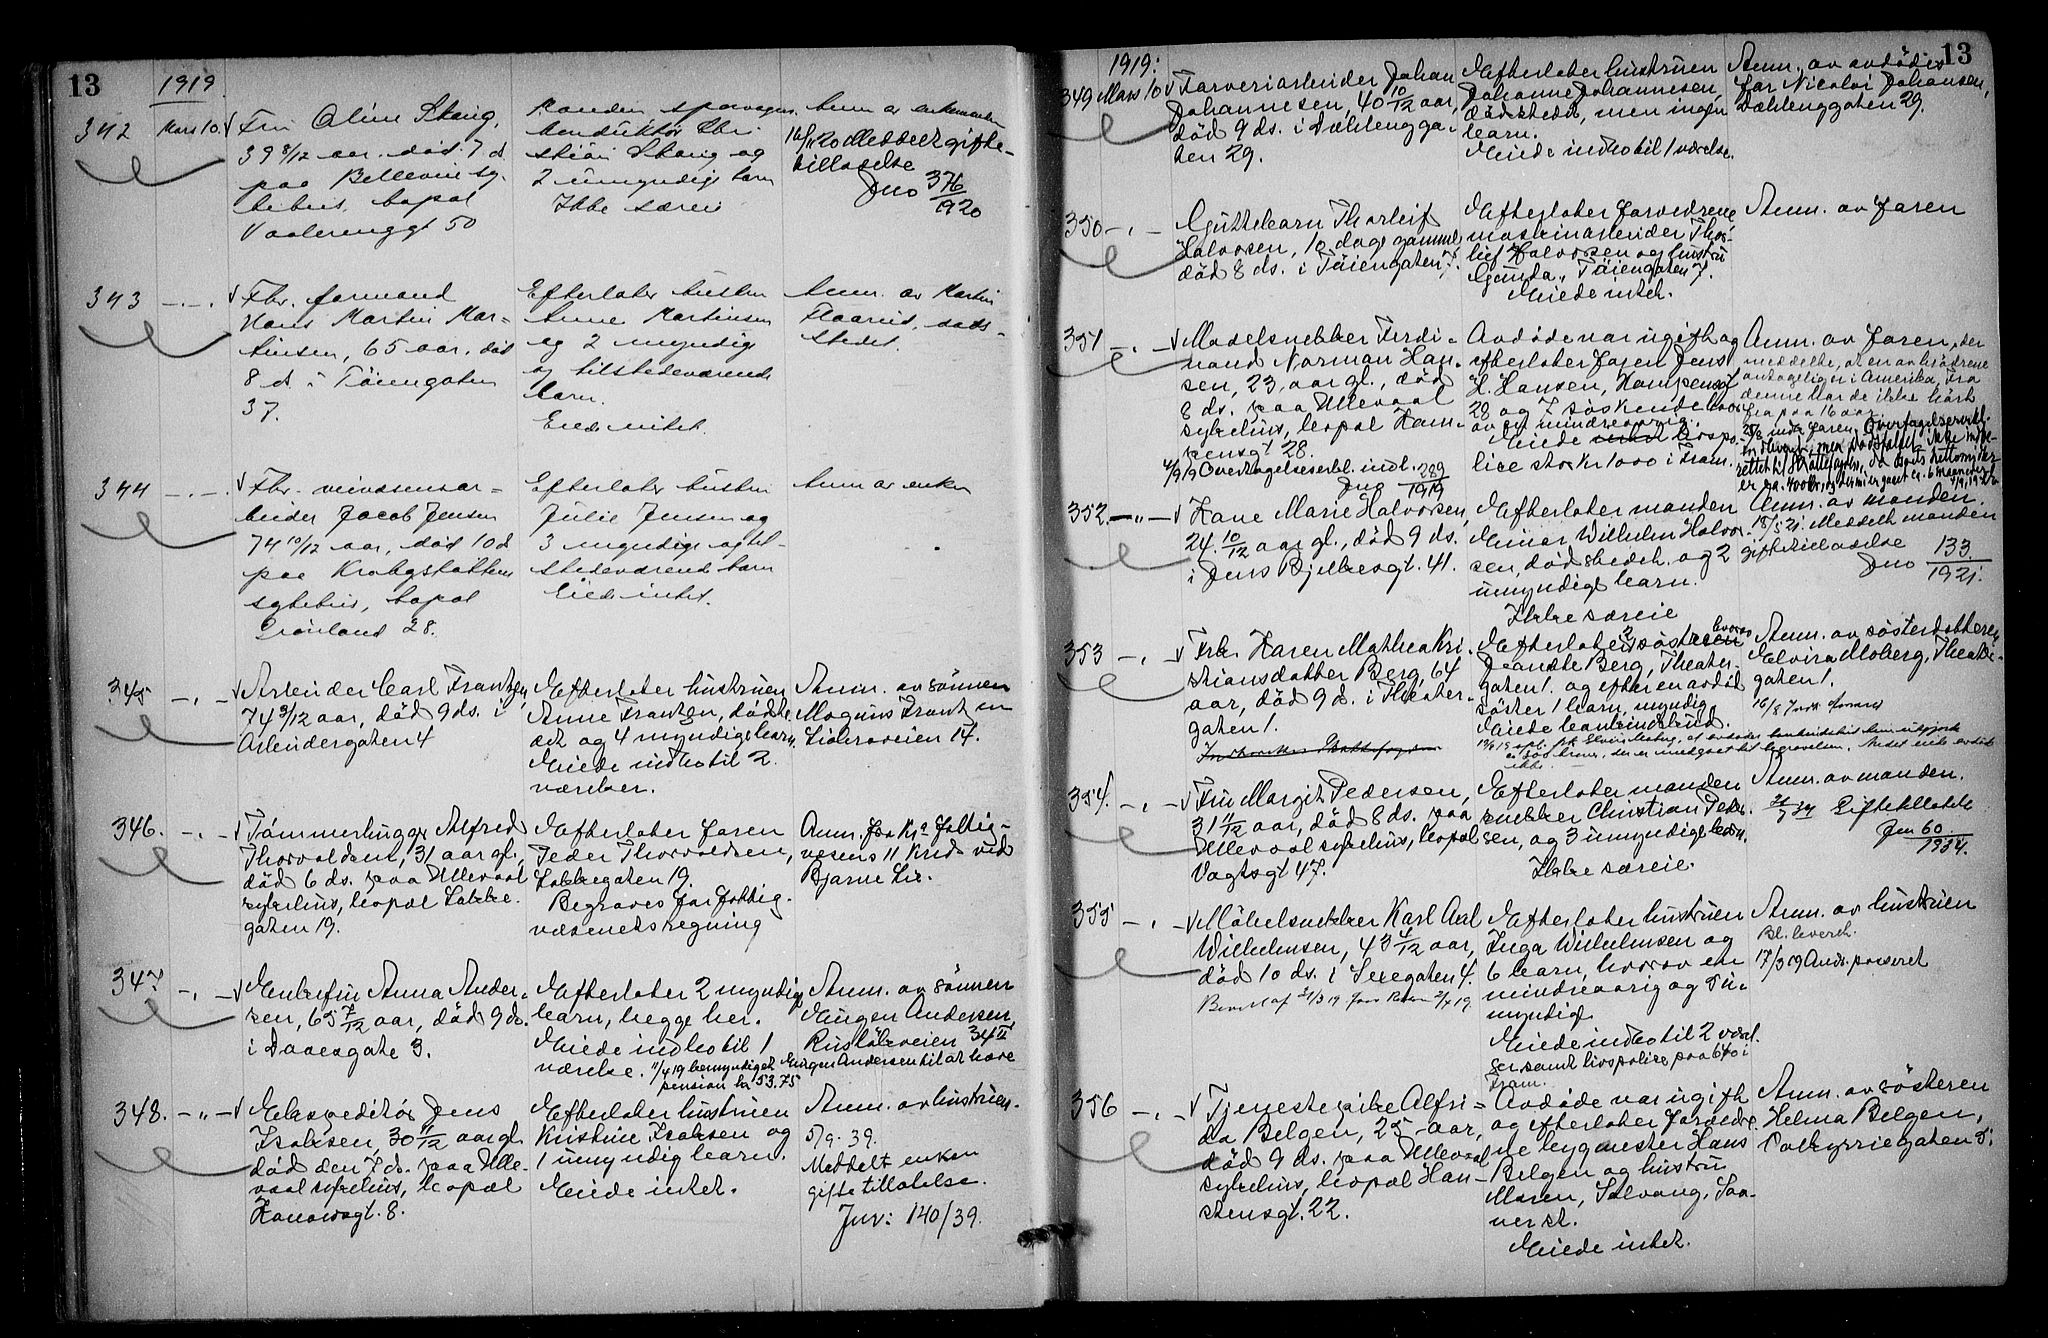 13
1919
342
Mars 10.
Fru Oline Skaug,
39 8/12 aar. død 7 d
paa Bellevue sy-
kehus, bopæl
Vaalerenggt 50
Manden, sporvogns
konduktør Chr-
stian Skaug og
2 umyndige barn
Ikke særeie
Anm. av enkemanden
Meddelt gifte-
tillatelse
Jno 376
1920
343 -"-
Fhv. formand
Hans Martin Mar-
tinsen, 65 aar, død
8 d. i Tøiengaten
37.
Efterlater hustru
Anne Martinsen
og 2 myndige
og tilstedeværende
barn.
Eiede intet.
Anm. av Martin
Flaarud, døds-
stedet.
344 -"-
Fhv. veivæsensar-
beider Jacob Jensen
74 10/12 aar, død 10 d
paa Krohgstøttens
sykehus, bopæl
Grønland 28.
Efterlater hustru
Julie Jensen og
3 myndige og til-
stedeværende barn
Eiede intet.
Anm av enken
345 -"-
Arbeider Carl Frantzen,
74 9/12 aar, død 9 ds. i
Arbeidergaten 4
Efterlater hustruen
Anne Frantzen, dødste-
det og 4 myndige barn.
Eiede indbo til 2
værelser.
Anm. av sønnen
Magnus Frantzen
Lideraveien 17.
346. -"-
Tømmerhugger Alfred
Thorvaldsen, 31 aar gl.,
død 6 ds. paa Ullevaal
sykehus, bopæl Lakke-
gaten 19.
Efterlater faren
Peder Thorvaldsen,
Lakkegaten 19.
Begraves for fattig-
væsenets regning
Anm. fra Kra fattig-
væsens 11 kreds ved
Bjarne Lie.
347 -"-
Enkefru Anna Ander-
sen, 65 7/12 aar, død 9 ds.
i Daaesgate 3.
Efterlater 2 myndige
barn, begge her.
Eiede indbo til 1
værelse. 11/4 19 bemyndiget Eugen Andersen til at hæve
pension kr 53.75
Anm. av sønnen
Eugen Andersen,
Rustadveien 34 II
348. -"-
Ekspeditør Jens
Isaksen, 30 11/12 aar gl.
død den 7 ds. paa Ulle-
vaal sykehus, bopæl
Kanowsgt. 8.
Efterlater hustruen
Kristine Isaksen og
1 umyndig barn.
Eiede intet.
Anm. av hustruen.
5/9. 39.
Meddelt enken
giftetillatelse.
Jnr: 140/39.
13
1919:
349 Mars 10
Farveriarbeider Johan
Johannesen, 40 10/12 aar,
død 9 ds. i Dæhlengga-
ten 29.
Efterlater hustruen
Johanne Johannesen,
dødstedet, men ingen
barn.
Eiede indbo til 1 værelse.
Anm. av avdødes
far Nicolai Johansen,
Dæhlenggaten 29.
350 -"-
Guttebarn Thorleif
Halvorsen, 10 dage gammel,
død 8 ds. i Tøiengaten 7.
Efterlater forældrene
maskinarbeider Thor-
leif Halvorsen og hustru
Gunda, Tøiengaten 7.
Eiede intet.
Anm. av faren
351 -"-
Modelsnekker Ferdi-
nand Norman Han-
sen, 23 aar gl., død
8 ds. paa Ullevaal
sykehus, bopæl Ham-
pensgt 28.
4/9 19 Overtagelseserkl. indl.
Jno 289
1919
Avdøde var ugift og
efterlater faren Jens
H. Hansen,
28 og 7 søskende hvor-
av en mindreaarig.
Eiede livspo-
lice stor kr 1000 i Fram.
Anm. av faren, der
meddelte, at en av brødrene
antagelig er i Amerika. Fra
denne har de ikke hørt
fra paa 16 aar.
352. -"-
Kone Marie Halvorsen,
24 10/12 aar gl., død 9 ds.
i Jens Bjelkesgt. 41.
Efterlater manden
Einar Wilhelm Halvor-
sen, dødstedet og 2
umyndige barn.
Ikke særeie
Anm. av manden.
18/5 21. Meddelt manden
giftetilladelse
Jno 133
1921.
353 -"-
Frk. Karen Mathea Kri-
stiansdatter Berg, 64
aar, død 9 d. i Theater-
gaten 1.
Efterlater søsteren
Jeanette Berg, Theater-
gaten 1. og efter en avdød
søster 1 barn, myndig
Eiede bankindskud.
Anm. av søsterdatteren
Elvira Moberg, Theater-
gaten 1.
354. -"-
Fru Margit Pedersen,
31 4/12 aar, død 8 ds. paa
Ullevaal sykehus, bopæl
Vogtsgt 47.
Efterlater manden
snekker Christian Peder-
sen, og 3 umyndige barn.
Ikke særeie.
Anm. av manden.
Giftetillatelse
Jno 60
1934.
355 -"-
Møbelsnekker Karl Axel
Wilhelmsen, 43 4/12 aar,
død 10 ds. i Sexegaten 4.
Efterlater hustruen
Inga Wilhelmsen og
6 barn, hvorav en
mindreaarig og 5 u-
myndige
Eiede indbo til 2 værel-
ser samt livspolice paa 600 i
Fram.
Anm. av hustruen
Bl. leveret.
17/3 19 Ands. passeret
356 -"-
Tjenestepike Alfri-
da Belgen, 25 aar,
død 9 ds. paa Ullevaal
sykehus, bopæl Han-
stensgt. 22.
Avdøde var ugift
og efterlater forældre-
ne bygmester Hans
Belgen og hustru
Maren, Salvang, Saa-
ner st.
Eiede intet.
Anm. av søsteren
Helma Belgen,
Valkyriegaten 5.